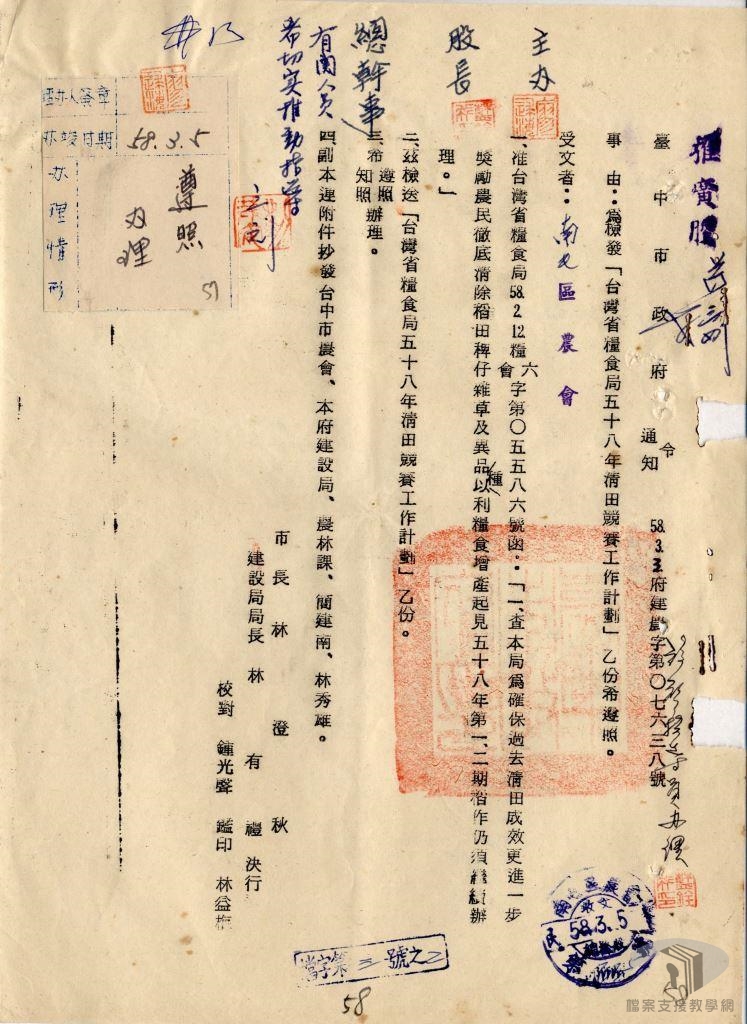 推廣股
臺中市政府 令 通知 58.3.3.府建農字第〇七六三八號
事由：為檢發「台灣省糧食局五十八年清田競賽工作計劃」乙份希遵照。
受文者：南屯區農會
一、准台灣省糧食局58.2.12.糧六會字第〇五五八六號函：「一、查本局為確保過去清田成效更進一步
獎勵農民徹底清除稻田稗仔雜草及異品種以利糧食增產起見五十八年第一、二期稻作仍須繼續辦
理。」
二、茲檢送「台灣省糧食局五十八年清田競賽工作計劃」乙份。
三、希遵照知照辦理。
四、副本連附件抄發台中市農會、本府建設局、農林課、簡建南、林秀雄。
市長林澄秋
建設局局長林有禮決行
校對 鍾光聲 鑑印 林益
主办
股長
總幹事
有関人員
希切实推動指導
經办人簽章
办竣日期 58.3.5
办理情形
遵照
办理
57
收文
58.3.5
當字第三號之2
58
檔案支援教學網